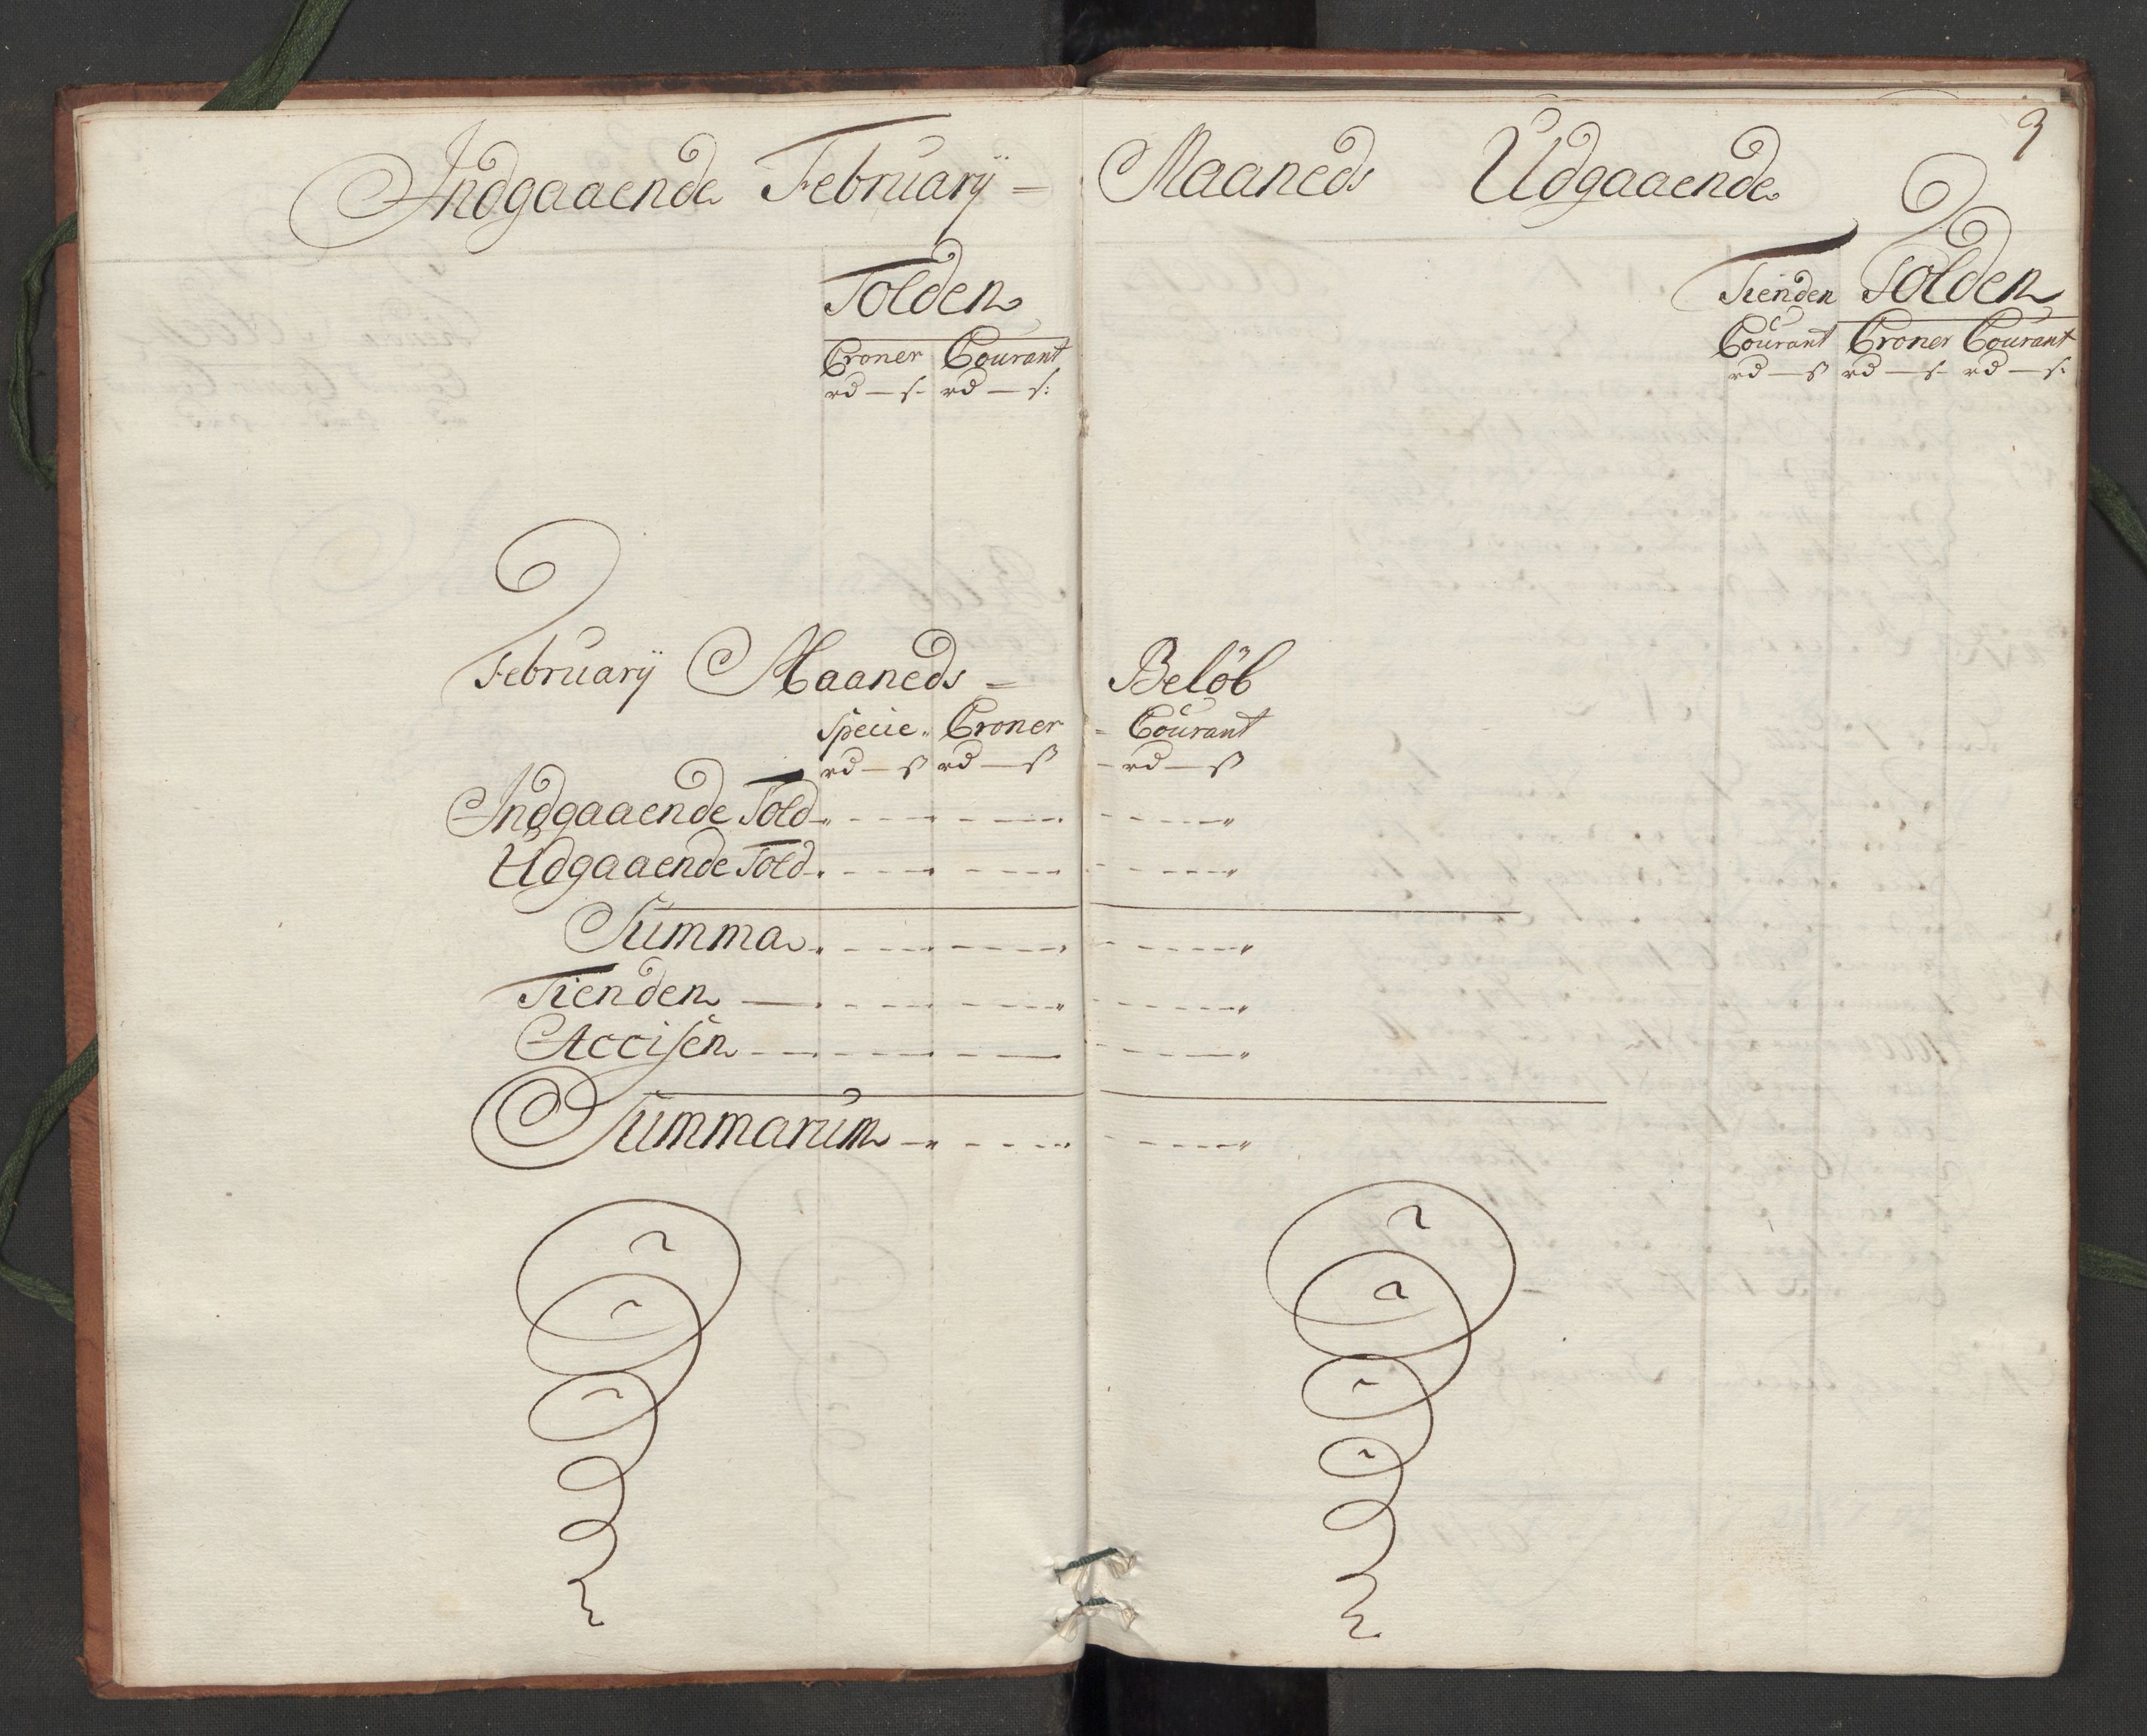 3
Indgaaende Februarÿ = Maaneds Udgaaende
Tolden
Croner Courant
rd — s. rd — s:
Tienden Tolden
Courant Croner Courant
rd — ß rd — s. rd — s:
Februarÿ Maaneds = Belöb
Specie. Croner = Courant
rd — ß rd — ß - rd — ß
Indgaaende Told
Udgaaende Told
Summa
Tienden
Accisen
Summarum